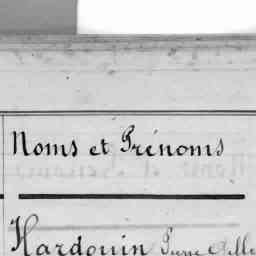 Noms et Prénoms
Hardouin